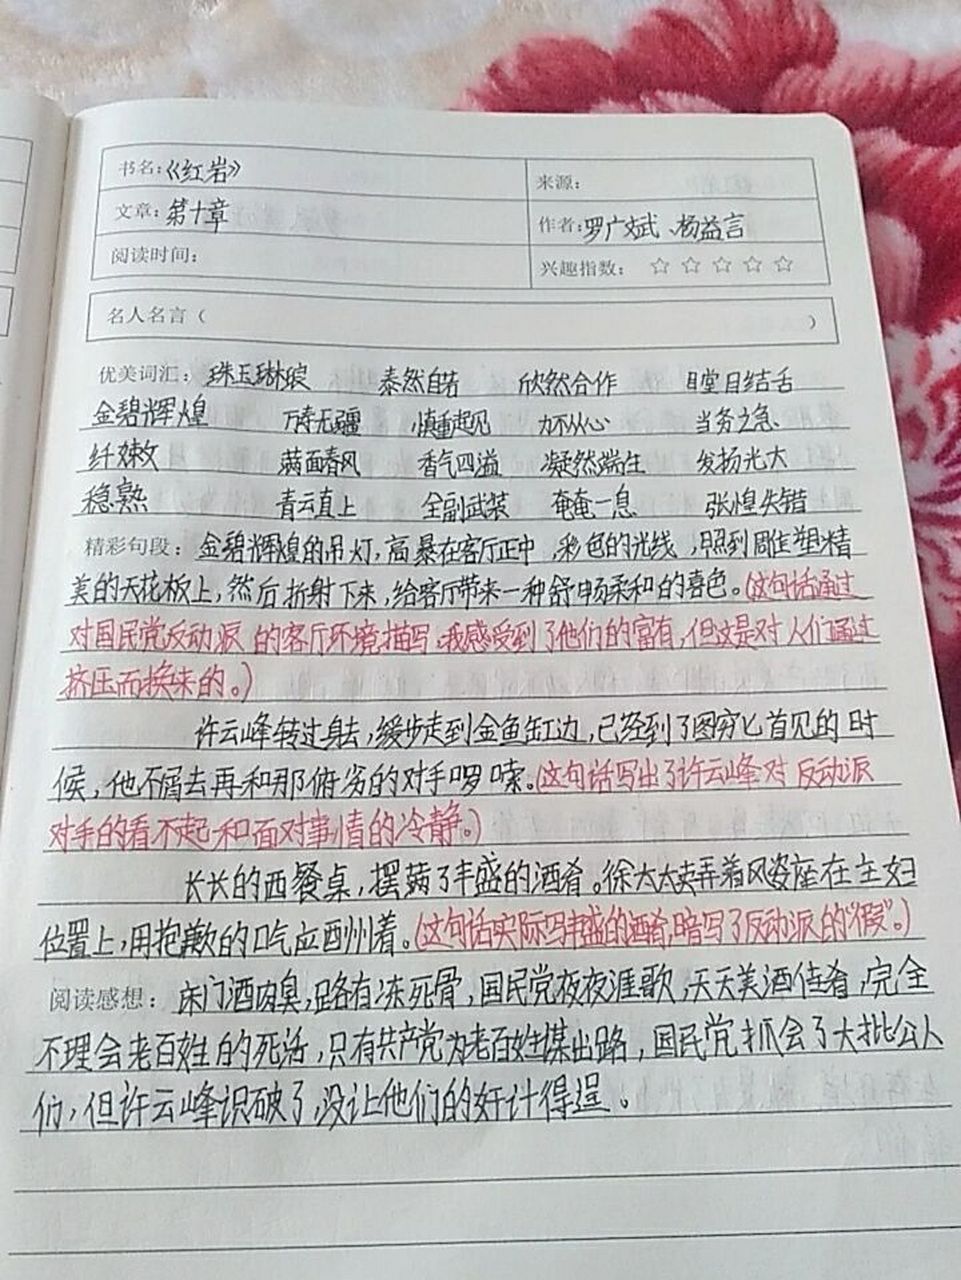 书名:《红岩》 来源:
文章:第十章 作者:罗广斌、杨益言
阅读时间: 兴趣指数: ☆ ☆ ☆ ☆ ☆
名人名言( )
优美词汇: 珠玉琳琅 泰然自若 欣然合作 目瞪口结舌
金碧辉煌 万寿无疆 慎重起见 力不从心 当务之急
纤嫩 满面春风 香气四溢 凝然端坐 发扬光大
稳熟 青云直上 全副武装 奄奄一息 张惶失错
精彩句段: 金碧辉煌的吊灯,高悬在客厅正中,彩色的光线,照到周住塑精
美的天花板上,然后折射下来,给客厅带来一种舒畅柔和的喜色。(这句话通过
对国民党反动派的客厅环境描写,我感受到了他们的富有,但这是对人们通过
挤压而换来的。)
许云峰转过身去,缓步走到金鱼缸边,已经到了图穷匕首见的时
候,他不屑去再和那俯劣的对手啰嗦。(这句话写出了许云峰对反动派
对手的看不起和面对事情的冷静。)
长长的西餐桌,摆满了丰盛的酒肴。徐太太卖弄着风姿座在主妇
位置上,用抱歉的口气应酬着。(这句话实际写丰盛的酒肴,暗写了反动派的“假”。)
阅读感想: 床门酒肉臭,路有冻死骨,国民党夜夜涯歌,天天美酒佳肴,完全
不理会老百姓的死活,只有共产党为老百姓谋出路,国民党抓会了大批公人
们,但许云峰识破了,没让他们的奸计得逞。